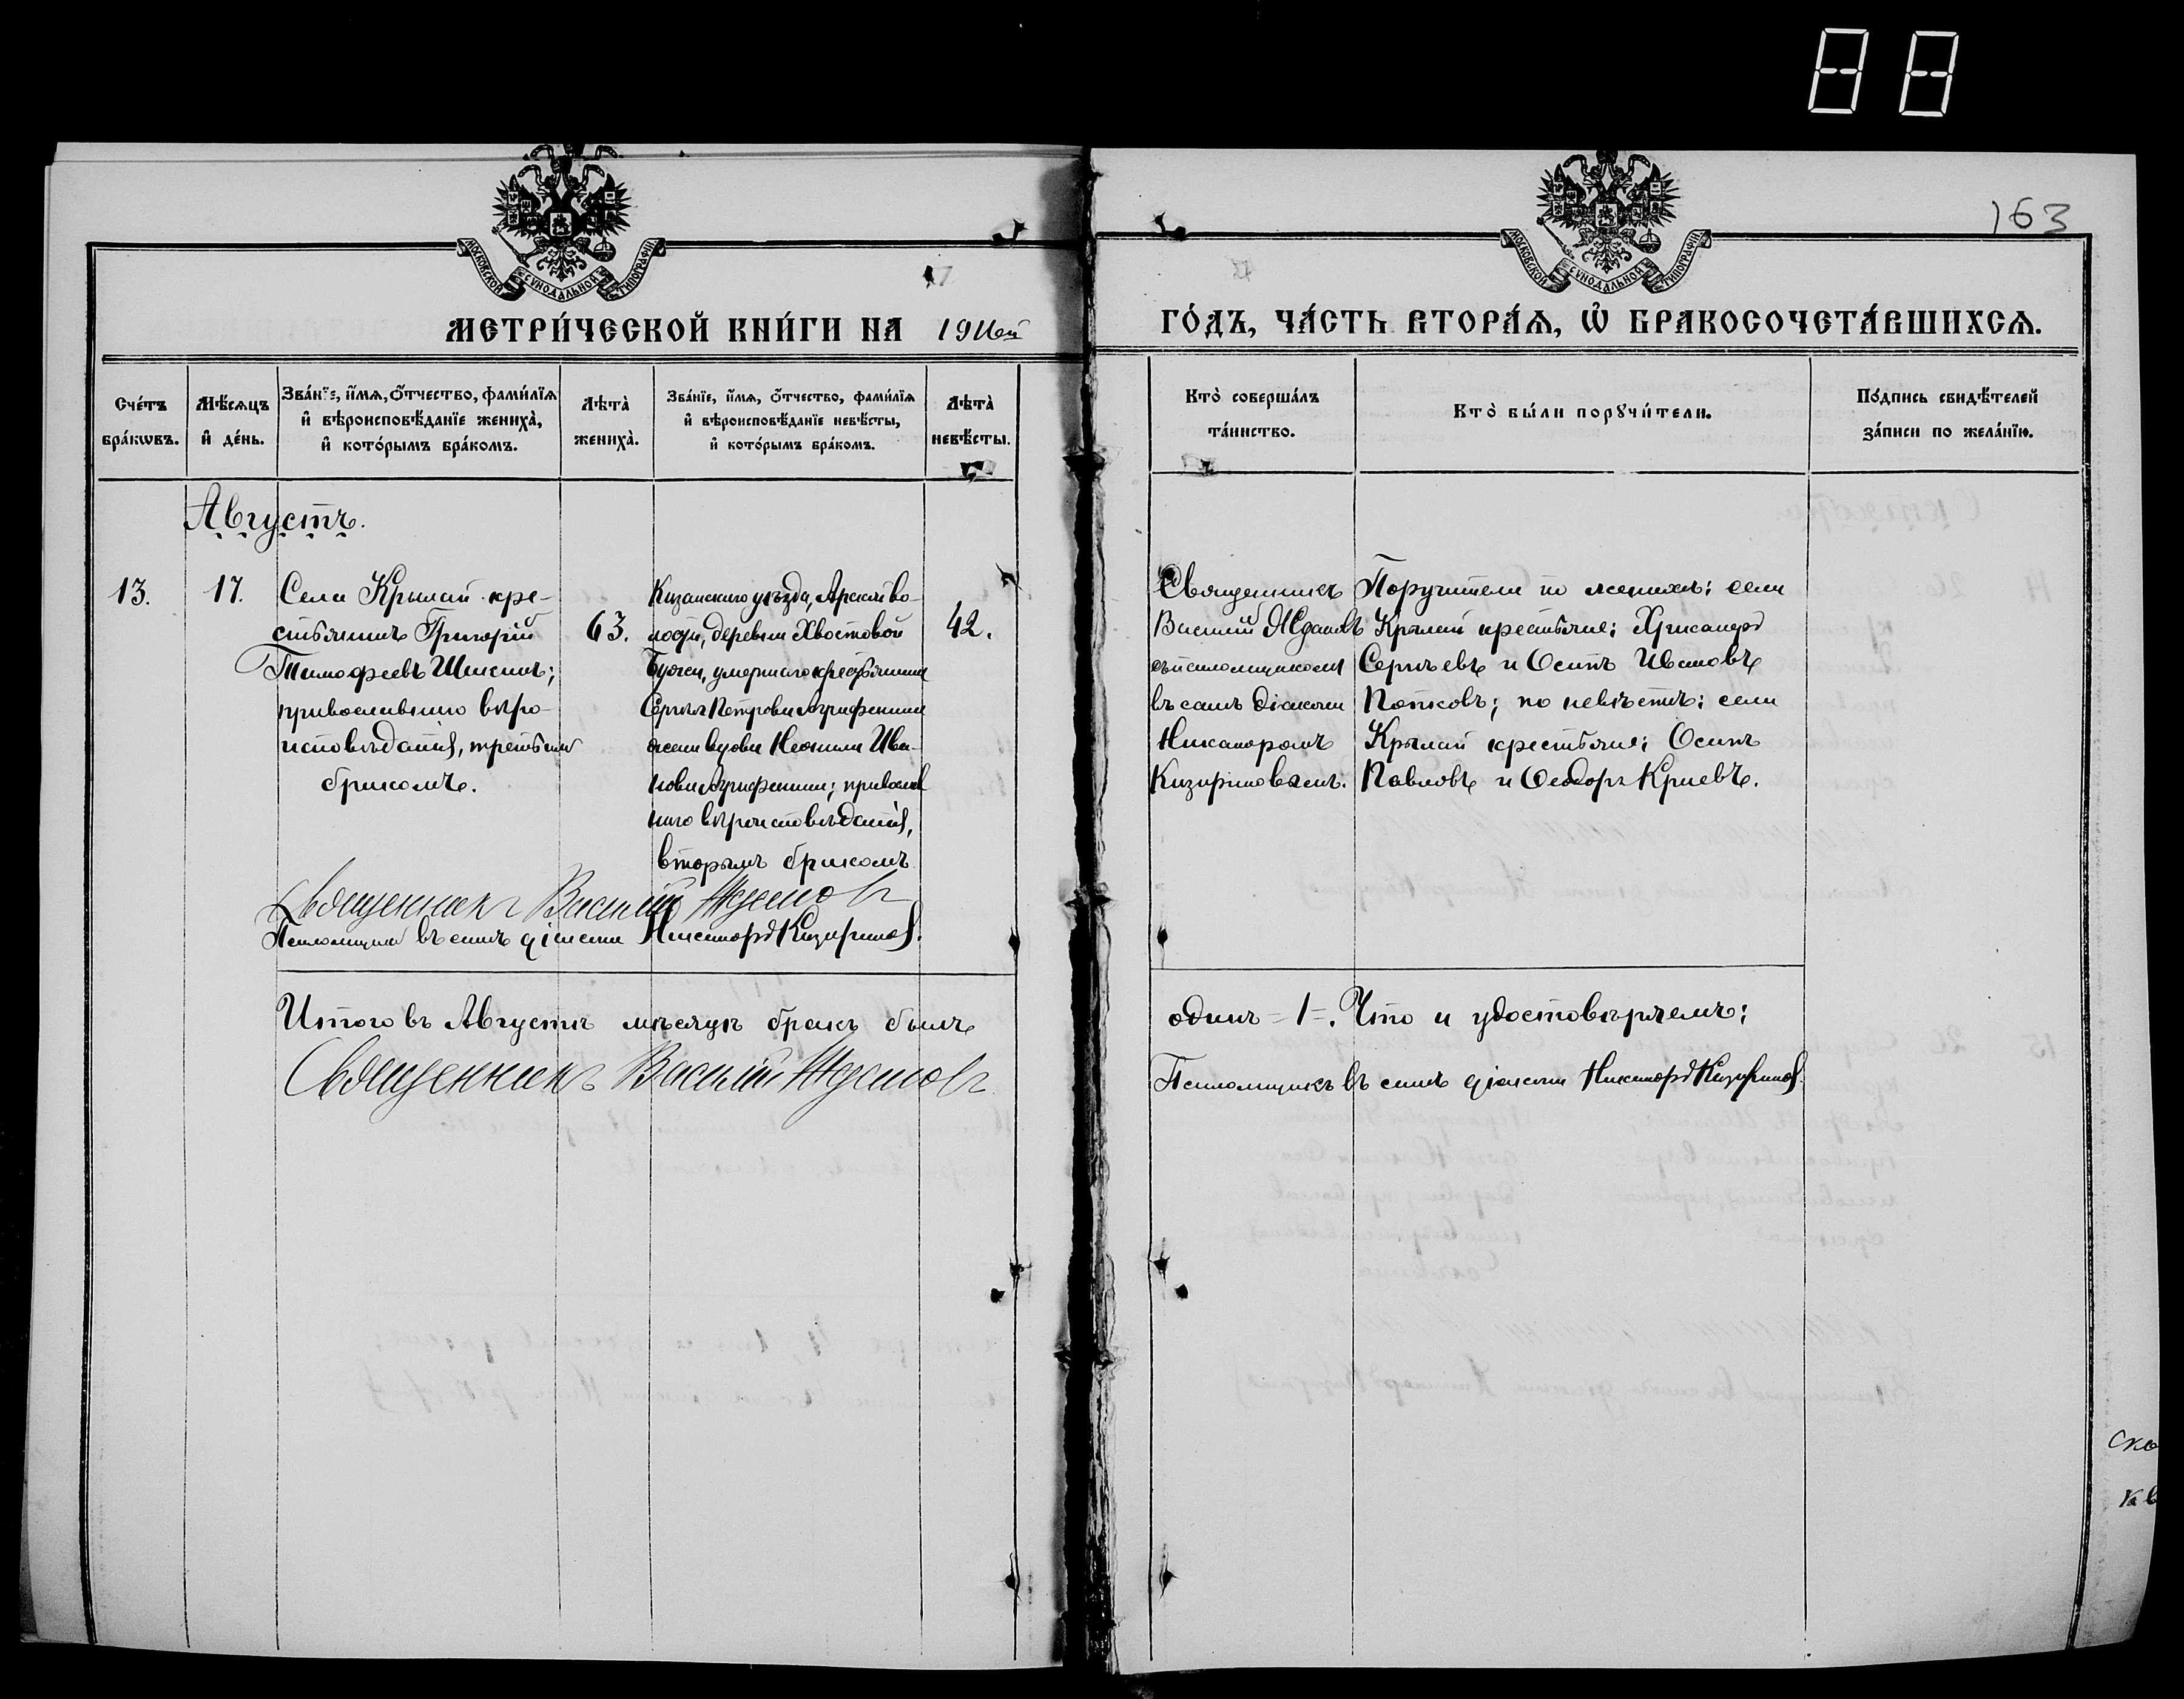 163
МОСКОВСКОЙ СѴНОДАЛЬНОЙ ТИПОГРАФІИ
МОСКОВСКОЙ СѴНОДАЛЬНОЙ ТИПОГРАФІИ
МЕТРИ́ЧЕСКОЙ КНИ́ГИ НА 19
ГО́ДЪ, ЧА́СТЬ ВТОРА́Ѧ, Ѡ҆ БРАКОСОЧЕТА́ВШИХСѦ.
Сче́тъ бра́кѡвъ.
Мѣ́сѧцъ и҆ де́нь.
Зва́нїе, и҆́мѧ, ѻ҆́тчество, фами́лїѧ
и҆ вѣроисповѣ́данїе жениха̀,
и҆ кото́рымъ бра́комъ.
Лѣта̀ жениха̀.
Зва́нїе, и҆́мѧ, ѻ҆́тчество, фами́лїѧ
и҆ вѣроисповѣ́данїе невѣ́сты,
и҆ кото́рымъ бра́комъ.
Лѣта̀ невѣ́сты.
Кто̀ соверша́лъ
та́инство.
Кто̀ бы́ли порꙋчи́тели.
По́дпись свидѣ́телей
за́писи по жела́нїю.
Августъ.
13.
17.
Села кре-
стьянинъ Григорій
Тимофеевъ
православнаго вѣро-
исповѣданія, третьимъ
бракомъ.
63.
Казанскаго уѣзда, во-
лости, деревни Хвостовой
умершаго крестьянина
Сергѣя Петрова
жена вдова Ива-
нова православ
наго вѣроисповѣданія,
вторымъ бракомъ
42.
Священникъ
Василій Ждановъ
съ псаломщикомъ
въ санѣ діакона
Никаноромъ
Поручители по женихѣ: села
крестьяне: Хрисанфъ
Сергѣевъ и Осипъ Ивановъ
по невѣстѣ: села
крестьяне: Осипъ
Павловъ и Ѳеодоръ
Священникъ Василій Ждановъ
Псаломщикъ въ санѣ діакона Никаноръ
Итого въ Августѣ мѣсяцѣ бракъ былъ
одинъ =1=. Что и удостовѣряемъ:
Священникъ Василій Ждановъ
Псаломщикъ въ санѣ діакона Никаноръ